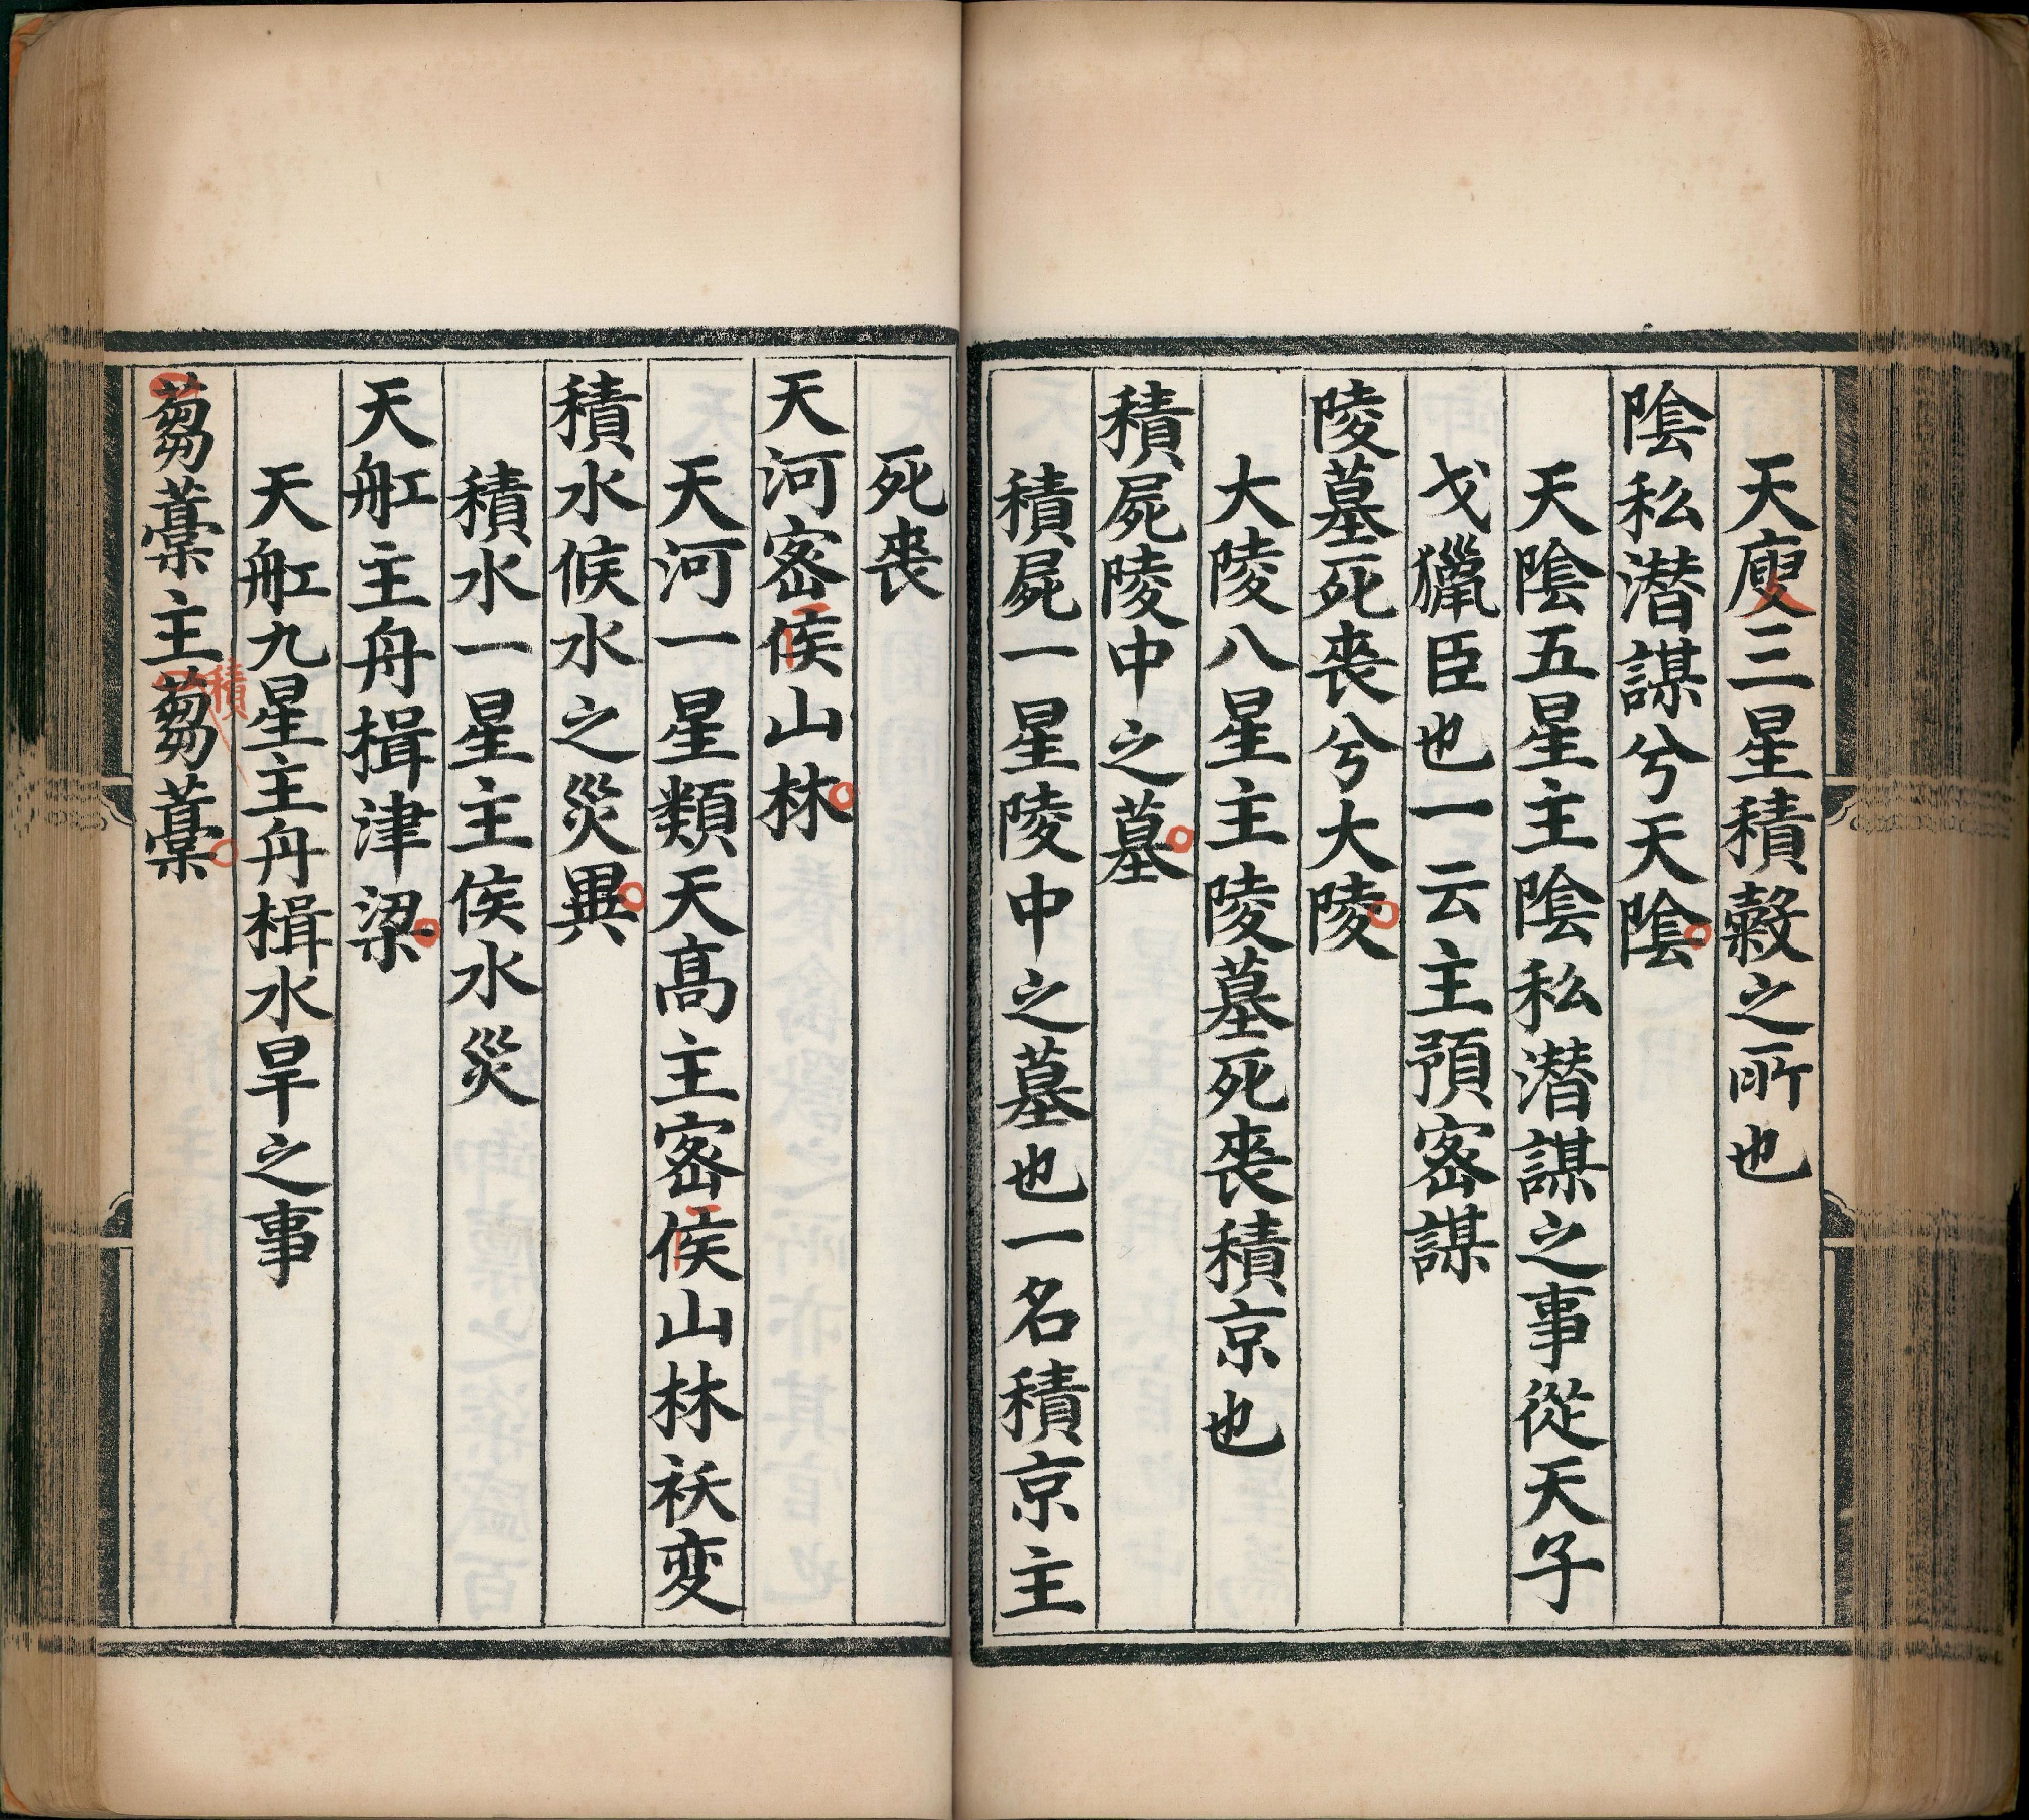 天廋三星積穀之所也
陰私潜謀兮天陰
天陰五星主陰私潜謀之事從天子
弋獵臣也一云主預密謀
陵墓死喪兮大陵
大陵八星主陵墓死喪積京也
積屍陵中之墓
積屍一星陵中之墓也一名積京主
死喪
天河密候山林
天河一星類天高主密候山林祅変
積水候水之災異
積水一星主侯水災
天舡主舟楫津梁
天舡九星主舟楫水旱之事
蒭藁主蒭藁
積